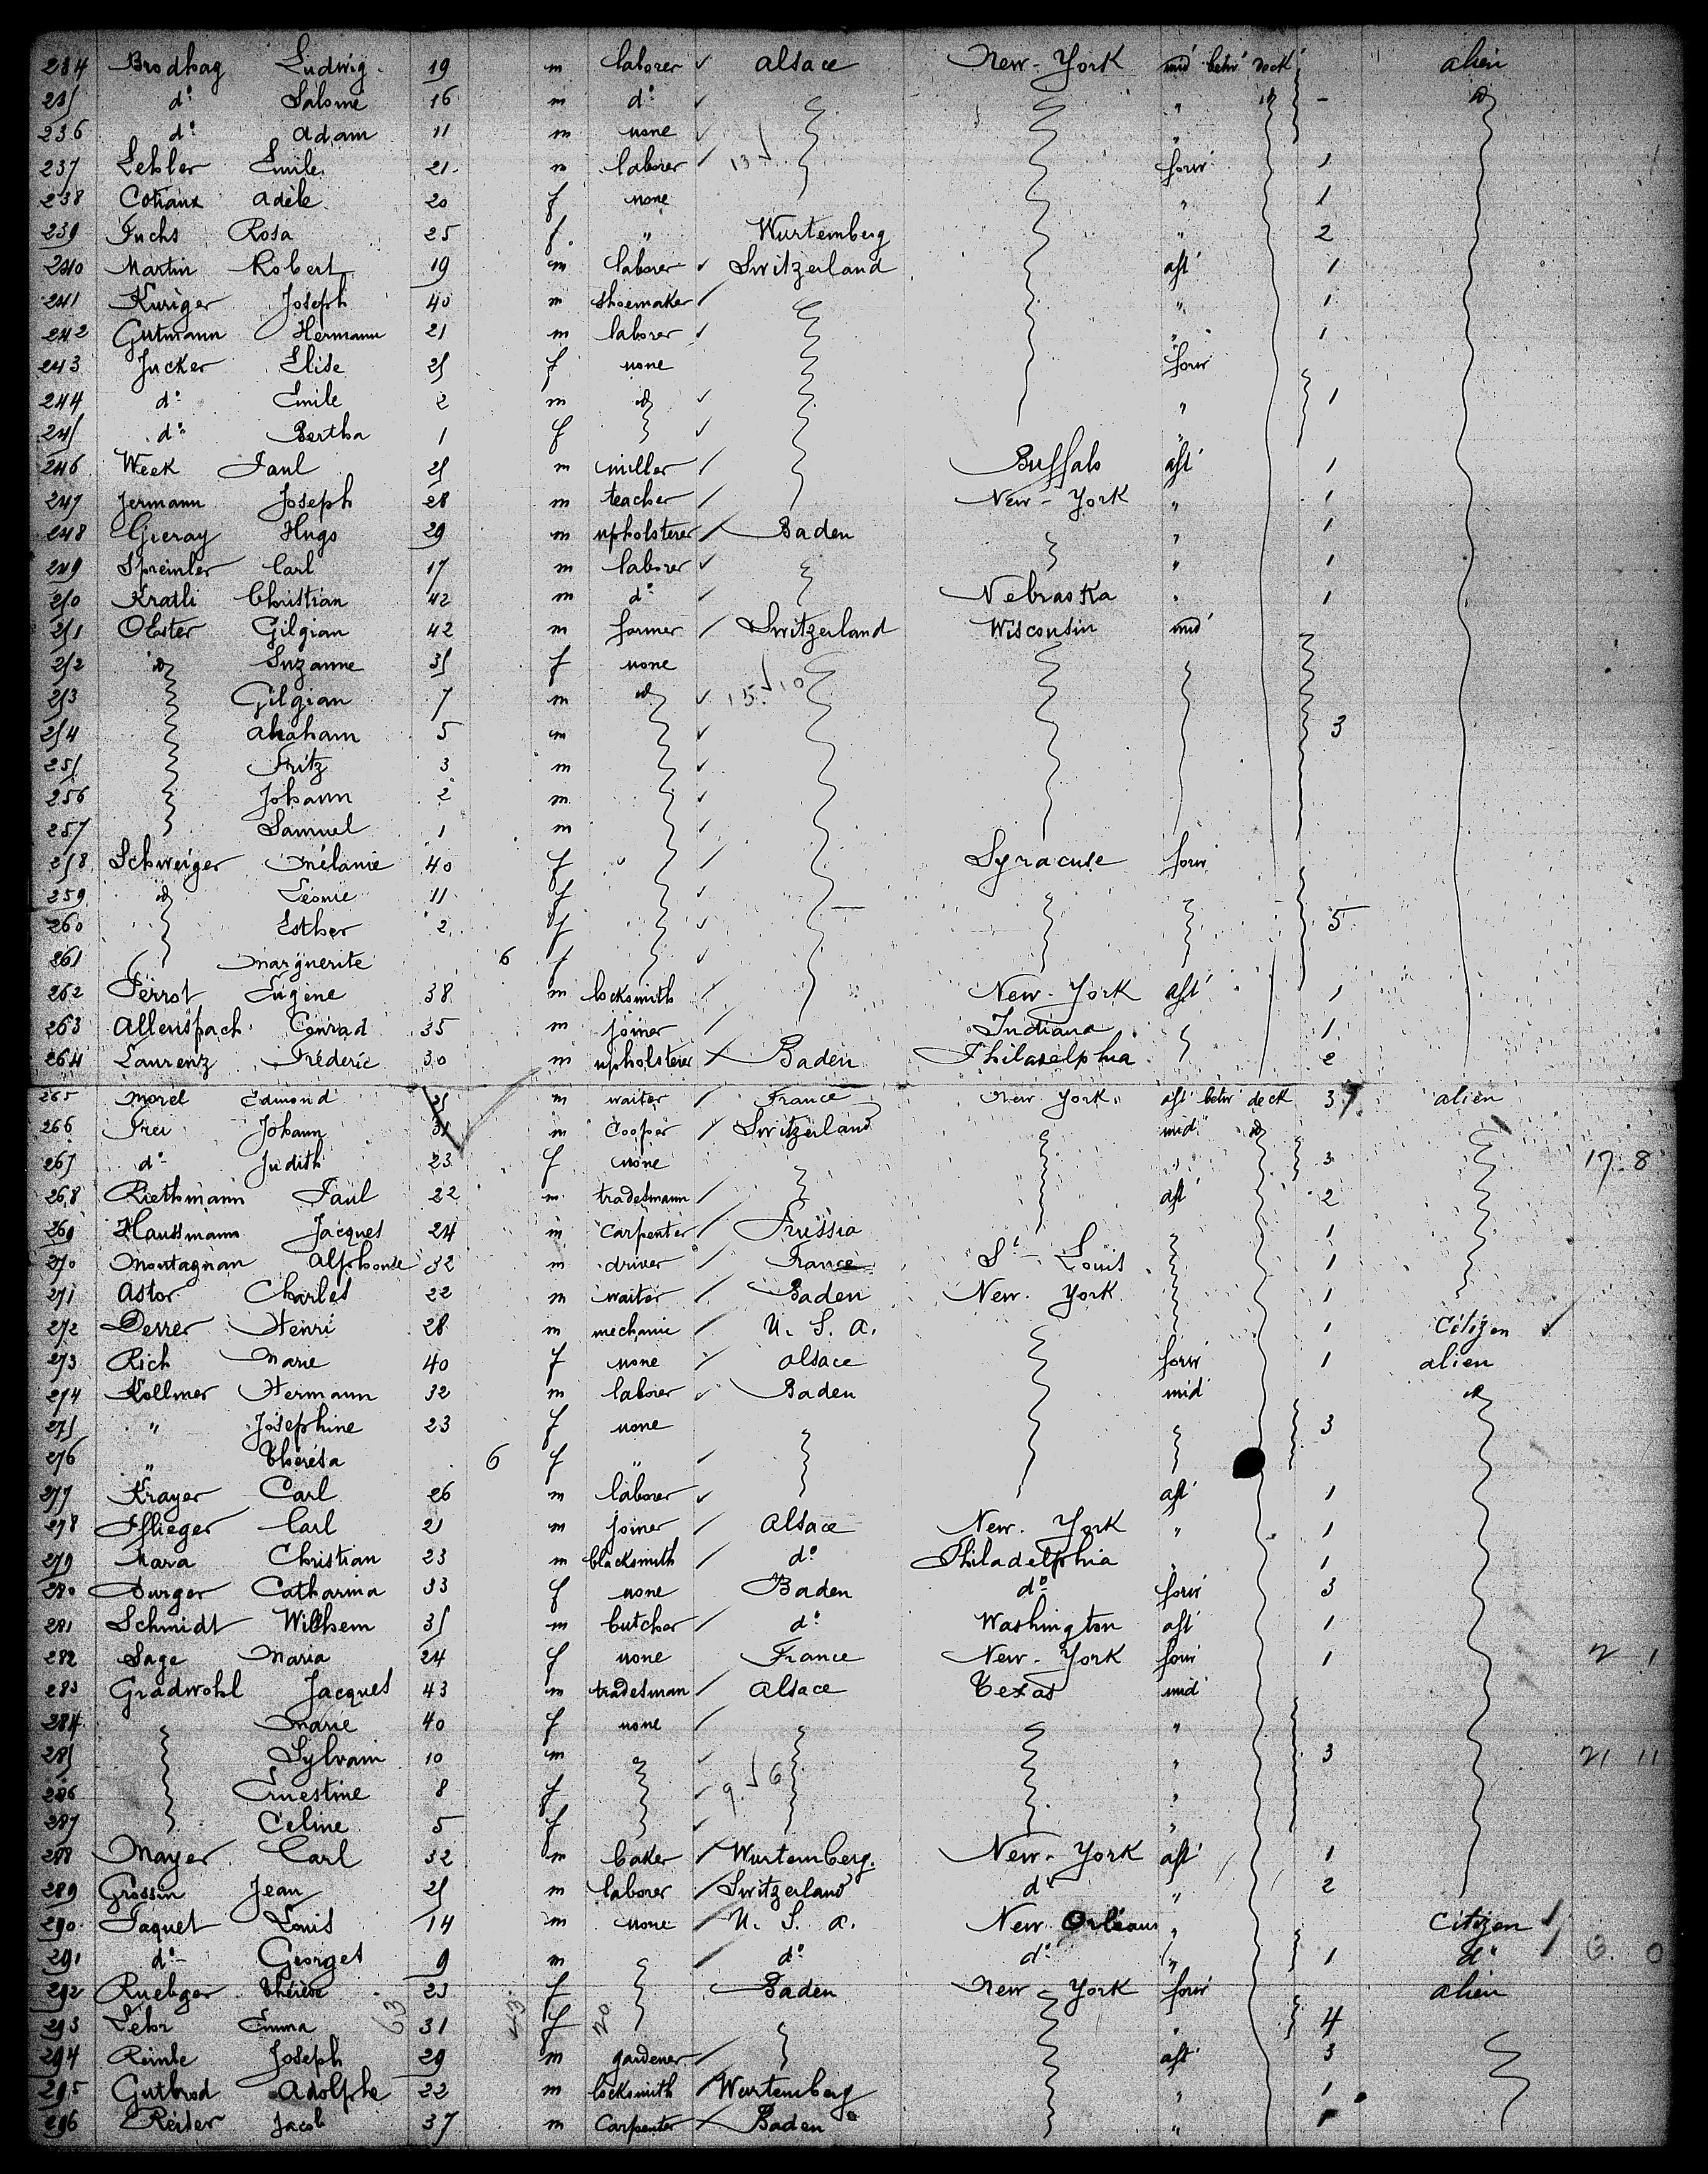 234 Brodhag Ludwig 19 m laborer ✓ Alsace New-York mid betw deck alien
235 do Salomé 16 m do ✓ " do - do
236 do Adam 11 m none ✓ "
237 Lehler Emile 21 m laborer ✓ 13 forw 1
238 Adèle 20 f none " 1
239 Fuchs Rosa 25 f " Wurtemberg " 2
240 Martin Robert 19 m laborer ✓ Switzerland aft 1
241 Kuriger Joseph 40 m shoemaker / " 1
242 Gutmann Hermann 21 m laborer / " 1
243 Jucker Elise 25 f none forw
244 do Emile 2 m do ✓ " 1
245 do Bertha 1 f ✓ "
246 Week Paul 25 m miller / Buffalo aft 1
247 Jermann Joseph 28 m teacher / New-York " 1
248 Gieray Hugo 29 m upholsterer / Baden " 1
249 Spreinler Carl 17 m laborer ✓ " 1
250 Kratli Christian 42 m do ✓ Nebraska " 1
251 Olster Gilgian 42 m farmer / Switzerland Wisconsin mid
252 do Suzanne 35 f none
253 Gilgian 7 m do ✓ 15 10
254 Abraham 5 m ✓ 3
255 Fritz 3 m ✓
256 Johann 2 m ✓
257 Samuel 1 m ✓
258 Schweiger Mélanie 40 f " / Syracuse forw
259 do Léonie 11 f ✓
260 Esther 2 f ✓ 5
261 Marguerite 6 f ✓
262 Perrot Eugène 38 m locksmith / New-York aft 1
263 Allenspach Conrad 35 m joiner / Indiana 1
264 Laurenz Fréderic 30 m upholsterer / Baden Philadelphia 2
265 Morel Edmond 25 m waiter / France New York aft betw deck 3 alien
266 Frei Johann 31 m Cooper / Switzerland mid do
267 do Judith 23 f none " 3 17 8
268 Riethmann Paul 22 m tradesmann / aft 2
269 Haussmann Jacques 24 m Carpenter / Prussia 1
270 Montagnan Alphonse 32 m driver / France St-Louis 1
271 Astor Charles 22 m waiter / Baden New-York 1
272 Derrer Henri 28 m mechanic / U. S. A. 1 Citizen ✓
273 Rich Marie 40 f none / Alsace forw 1 alien
274 Kollmer Hermann 32 m laborer ✓ Baden mid do
275 " Josephine 23 f none 3
276 " Thérésa 6 f " /
277 Krayer Carl 26 m laborer ✓ aft 1
278 Pflieger Carl 21 m joiner / Alsace New-York " 1
279 Mara Christian 23 m blacksmith / do Philadelphia " 1
280 Durger Catharina 33 f none Baden do forw 3
281 Schmidt Wilhem 35 m butcher / do Washington aft 1
282 Sage Maria 24 f none France New-York forw 1 2 1
283 Gradwohl Jacques 43 m tradesman / Alsace Texas mid
284 Marie 40 f none / "
285 Sylvain 10 m ✓ " 3 21 11
286 Ernestine 8 f ✓ 9 6 "
287 Celine 5 f ✓ "
288 Mayer Carl 32 m baker / Wurtemberg New-York aft 1
289 Grossin Jean 25 m laborer / Switzerland do " 2
290 Jaquet Louis 14 m none / U. S. A. New Orléans " Citizen ✓
291 do Georges 9 m / do do " 1 do 3 0
292 Ruelger Thérèse 23 f Baden New York forw alien
293 Lehr Emma 63 31 43 f 20 " 4
294 Reinle Joseph 29 m gardener / aft 3
295 Gutbrod Adolphe 22 m locksmith / Wurtemberg " 1
296 Reiter Jacob 37 m Carpenter / Baden " 1